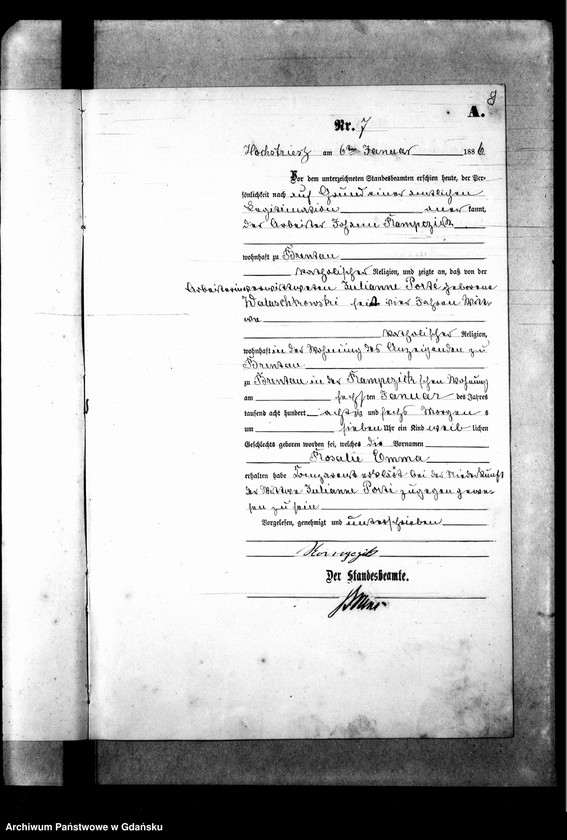 8
A.
Nr. 7
Hochstriess am 6ten Januar 1886
Vor dem unterzeichneten Standesbeamten erschien heute, der Per-
sönlichkeit nach auf Grund einer amtlichen
Legitimation aner kannt,
der Arbeiter Johann Kampezik
wohnhaft zu Brentau
katholischer Religion, und zeigte an, daß von der
Arbeiterin verwittweten Julianne Porté geborene
Walaschkowski seit vier Jahren Witt-
we
katholischer Religion,
wohnhaft in der Wohnung des Anzeigenden zu
Brentau
zu Brentau in der Kampezik'schen Wohnung
am sechsten Januar des Jahres
tausend acht hundert achtzig und sechs Morgens
um sieben Uhr ein Kind weib lichen
Geschlechts geboren worden sei, welches die Vornamen
Rosalie Emma
erhalten habe Comparent erklärt bei der Niederkunft
der Wittwe Julianne Porté zugegen gewe-
sen zu sein
Vorgelesen, genehmigt und unterschrieben
Der Standesbeamte.
Archiwum Państwowe w Gdańsku